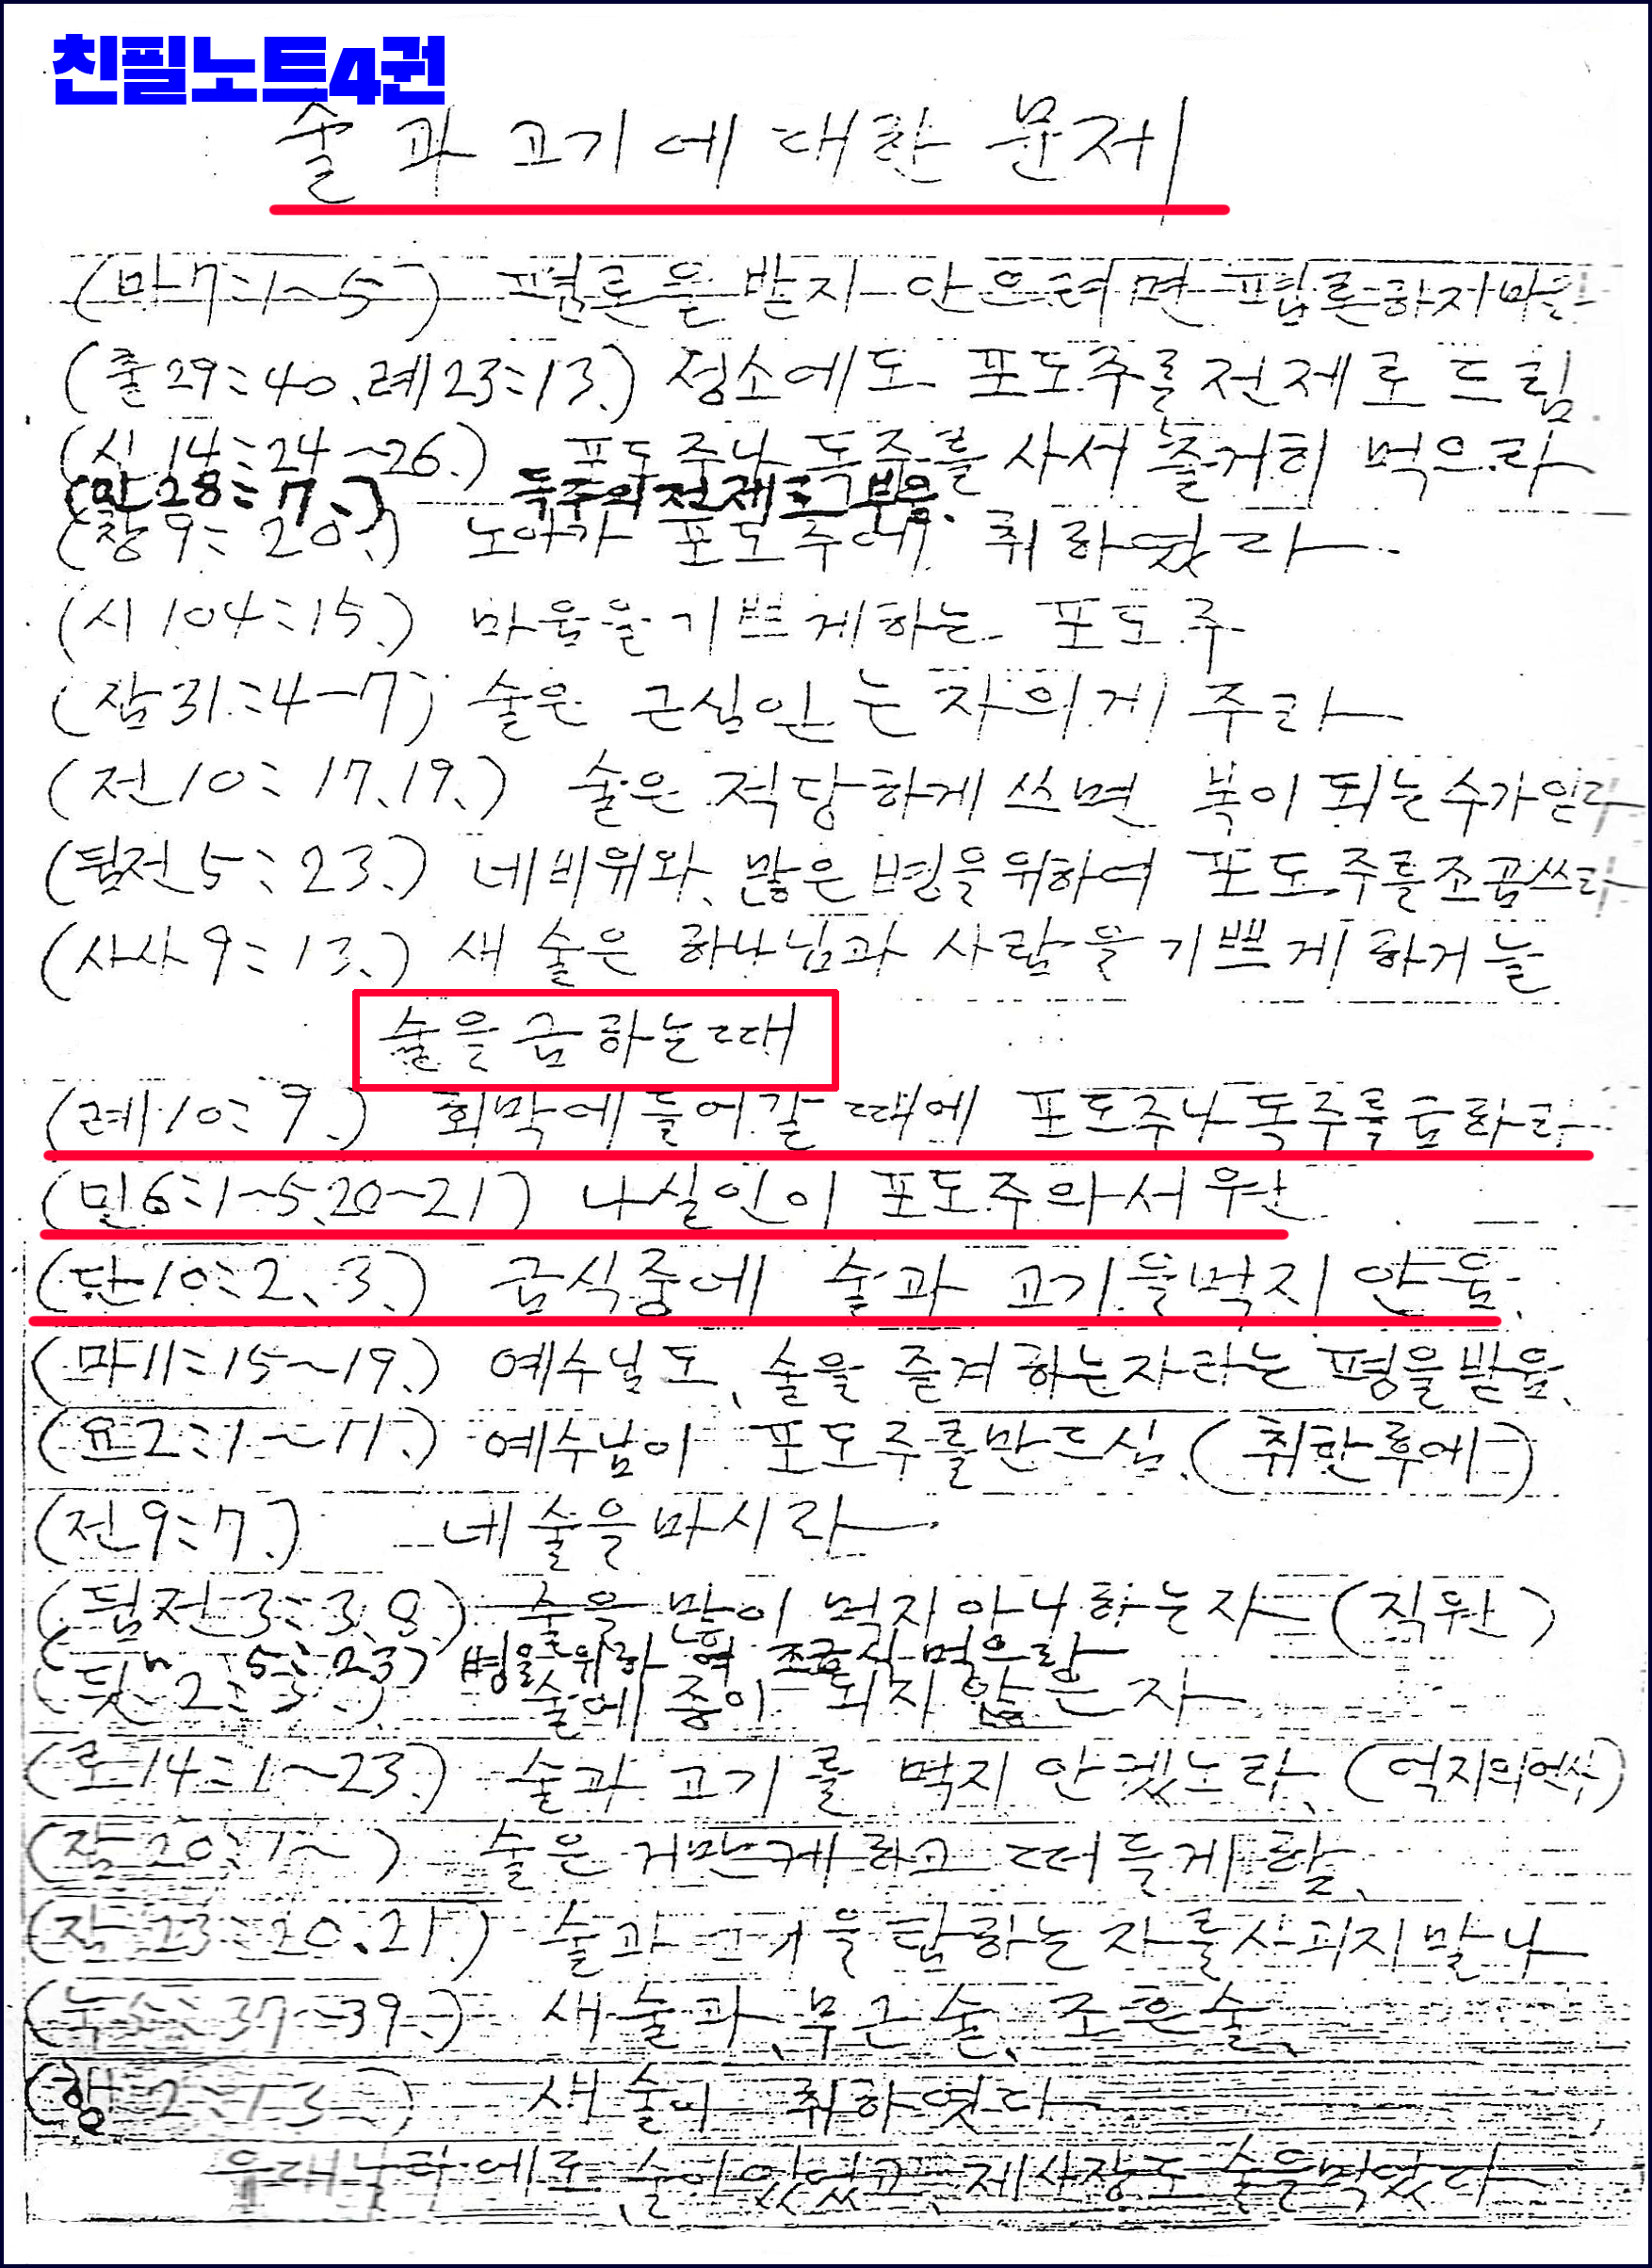 친필노트4권
술과 고기에 대한 문제
(마7:1~5) 평론을 받지 안으려면 평론하지마
(출29:40.레23:13.) 성소에도 포도주를 전제로 드림
(신14:24~26.) 포도주나 독주를 사서 즐거히 먹으라
(민28:7.) 독주의 전제로 부음.
(창9:20.) 노아가 포도주에 취하엿다
(시104:15.) 마음을 기쁘게하는 포도주
(잠31:4-7) 술은 근심인는 자의게 주라
(전10:17.19.) 술은 적당하게 쓰면 복이 되는수가인다
(딤전5:23.) 네비위와 많은 병을위하여 포도주를조곰쓰라
(사사9:13.) 새 술은 하나님과 사람을 기쁘게 하거늘
술을 금하는때
(레10:9.) 회막에 들어갈 때에 포도주나 독주를 금하라
(민6:1~5.20~21) 나실인이 포도주의 서원
(단10:2、3.) 금식중에 술과 고기를먹지 안음.
(마11:15~19.) 예수님도、술을 즐겨하는자라는 평을받음.
(요2:1~11.) 예수님이 포도주를만드심.(취한후에)
(전9:7.) 네 술을 마시라
(딤전3:3.8.) 술을 만이 먹지아니하는자 (직원)
( 〃 5:23) 병을 위하여 조금식 먹으라
(딋2:3.) 술에 종이 되지 않은 자
(로14:1~23.) 술과 고기를 먹지 안켓노라、(억지의인식)
(잠20:1~) 술은 거만케하고 떠들게 함.
(잠23:20、21.) 술과 고기을 탐하는 자를사괴지 말나
(눅5:37~39.) 새 술과、무근술、조흔술、
(행2:13.) 새 술이 취하엿다
술이있었고、제사장도 술을먹었다